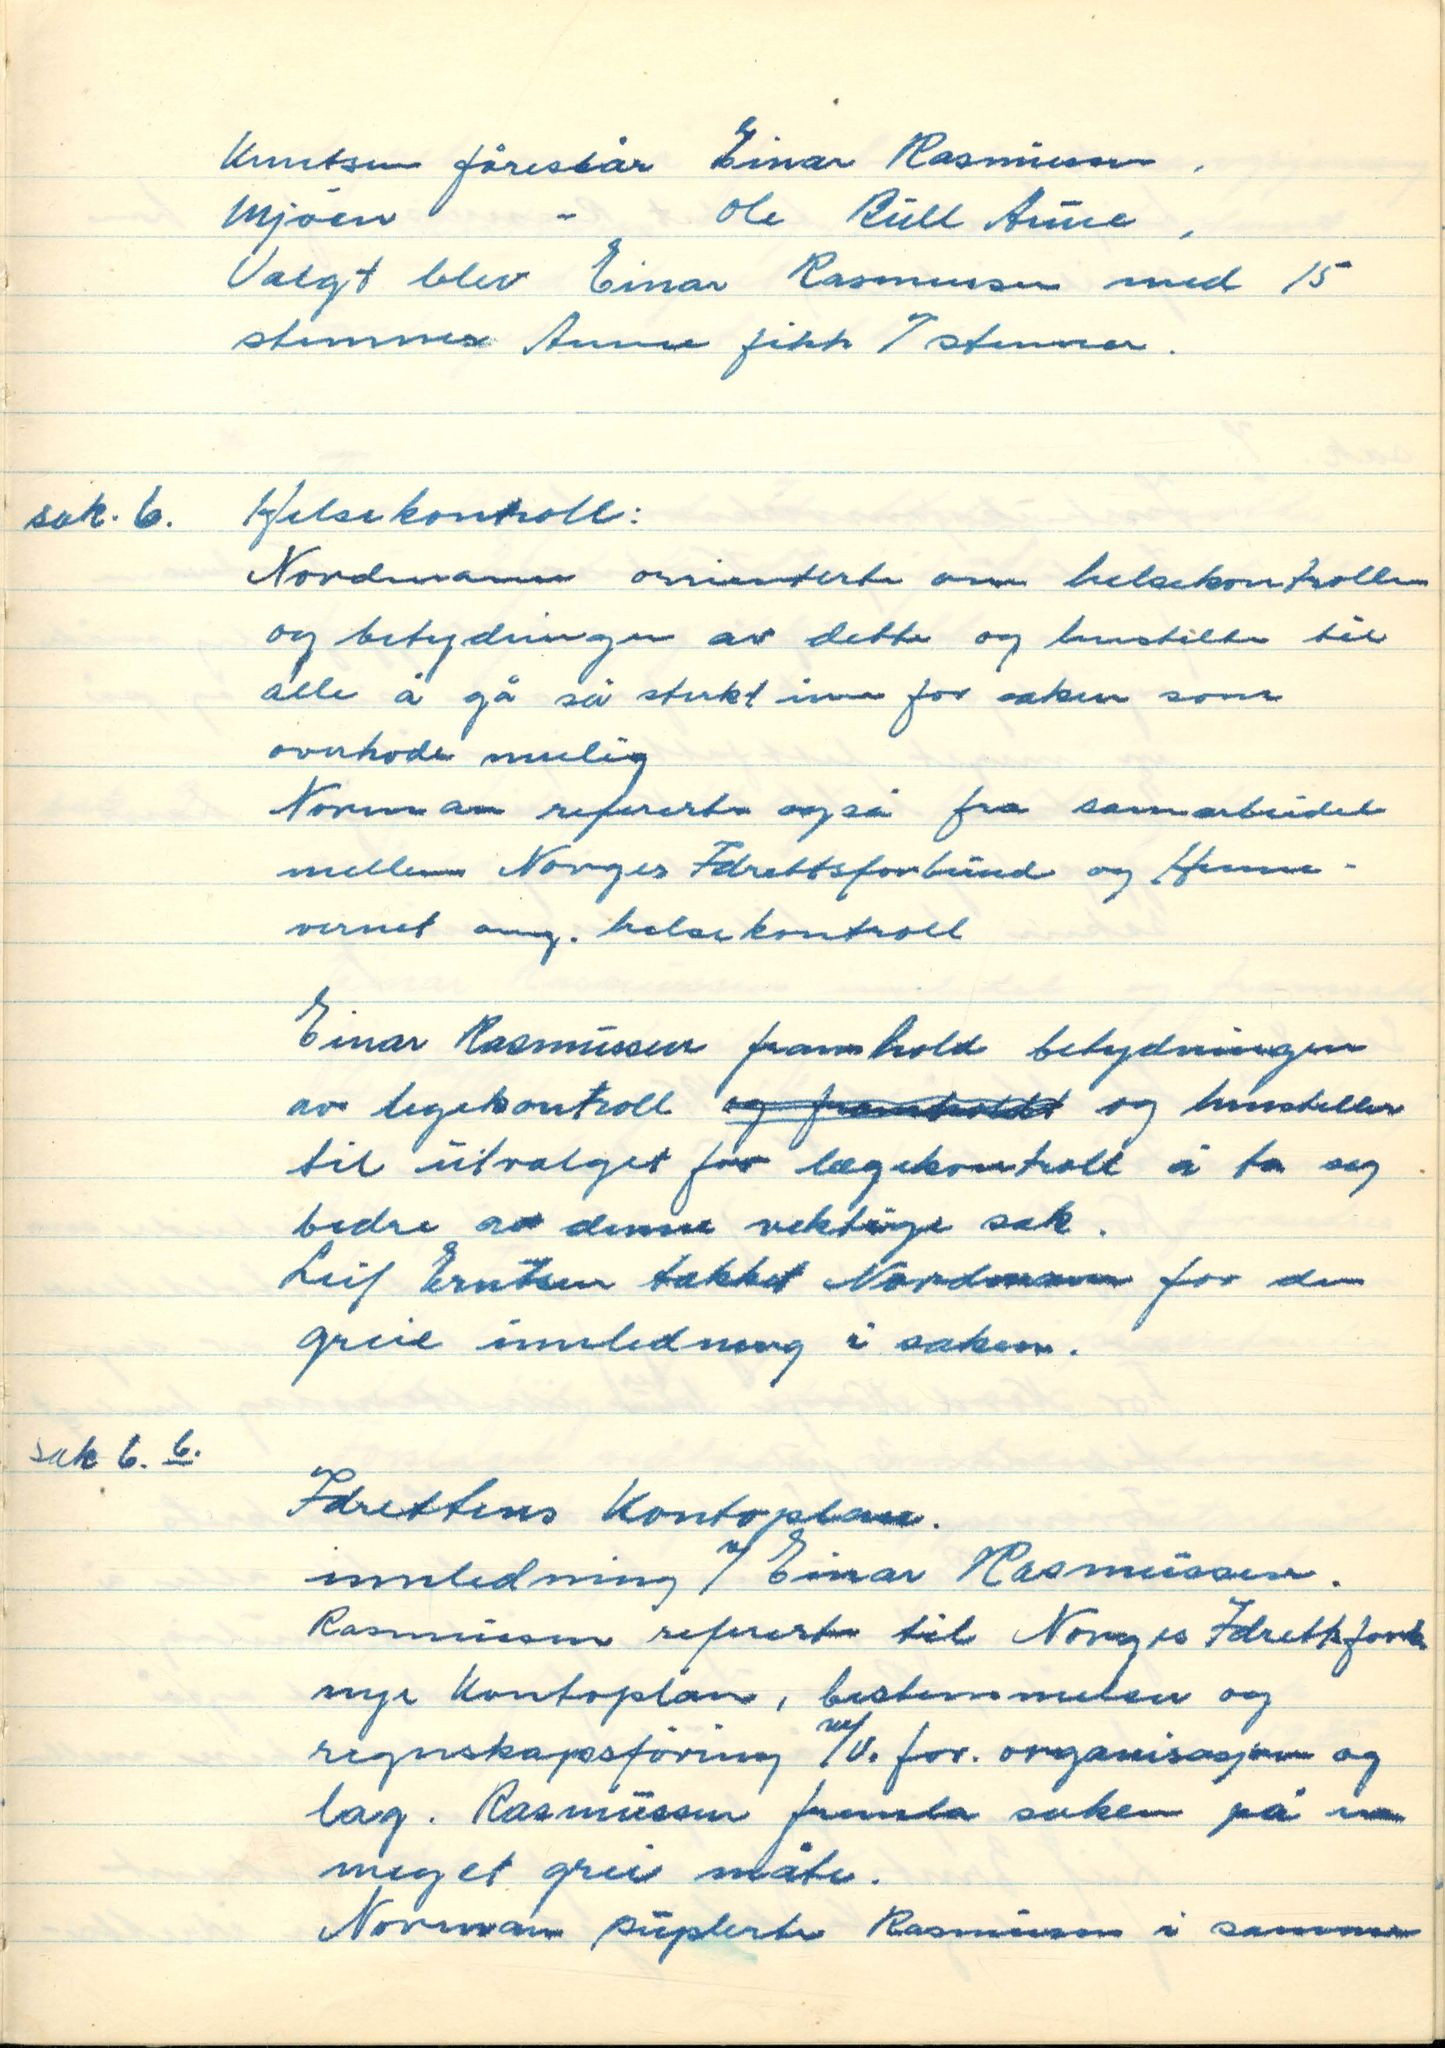 Knutsen föreslår Einar Rasmussen,
Mjöen - Ole Bull Aune,
Valgt blev Einar Rasmussen med 15
stemmer Aune fikk 7 stemmer.
sak. 6. Helsekontroll:
Nordmann orrienterte om helsekontrollen
og betydningen av dette og henstilte til
alle å gå så sterkt inn for saken som
overhode mulig
Norman refererte også fra samarbeidet
mellem Norges Idrettsforbund og Heime-
vernet ang. helsekontroll
Einar Rasmussen framhold betydningen
av legekontroll og framholdt og henstiller
til utvalget for lægekontroll å ta seg
bedre av denne viktige sak.
Leif Erntsen takket Nordmann for den
greie innledning i saken.
sak 6. 6.
Idrettens Kontoplan.
innledning v/ Einar Rasmussen.
Rasmussen refererte til Norges Idrettsforb
nye Kontoplan, bestemmelser og
regnskapsföring m/V. for. organisasjon og
lag. Rasmussen fremla saken på en
meget grei måte.
Norman suplerte Rasmussen i samme